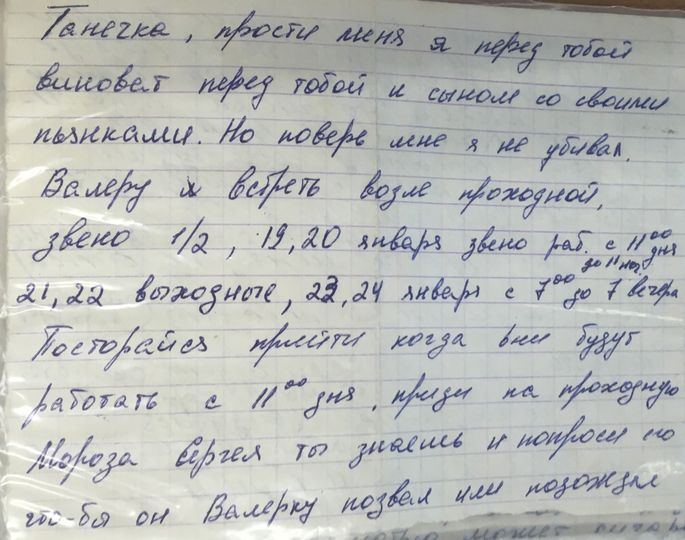 Танечка, прости меня я перед тобой
виноват перед тобой и сыном со своими
пьянками. Но поверь мне я не убивал.
Валеру встреть возле проходной,
звено 1/2, 19, 20 января звено раб. с 11⁰⁰ дня
до 11 ноч.
21, 22 выходные, 23, 24 января с 7⁰⁰ до 7 вечера
Посторайся прийти когда они будут
работать с 11⁰⁰ дня, приди на проходную
Мороза Сергея ты знаешь и попроси его
что-бы он Валерку позвал или подождал
может